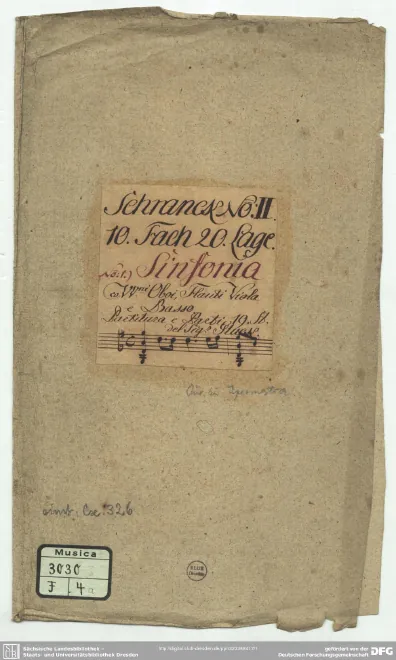 Schranck No: II.
10. Fach 20. Lage.
No: 1.) Sinfonia
co VVni Oboi, Flauti Viola
e Basso.
Partitura e Parti 19. St.
del Sigr: Hasse.
Ouv. zu Ipermestra
Cx: 326
Musica
3030
F 4a
Sächsische Landesbibliothek –
Staats- und Universitätsbibliothek Dresden
gefördert von der
Deutschen Forschungsgemeinschaft
DFG